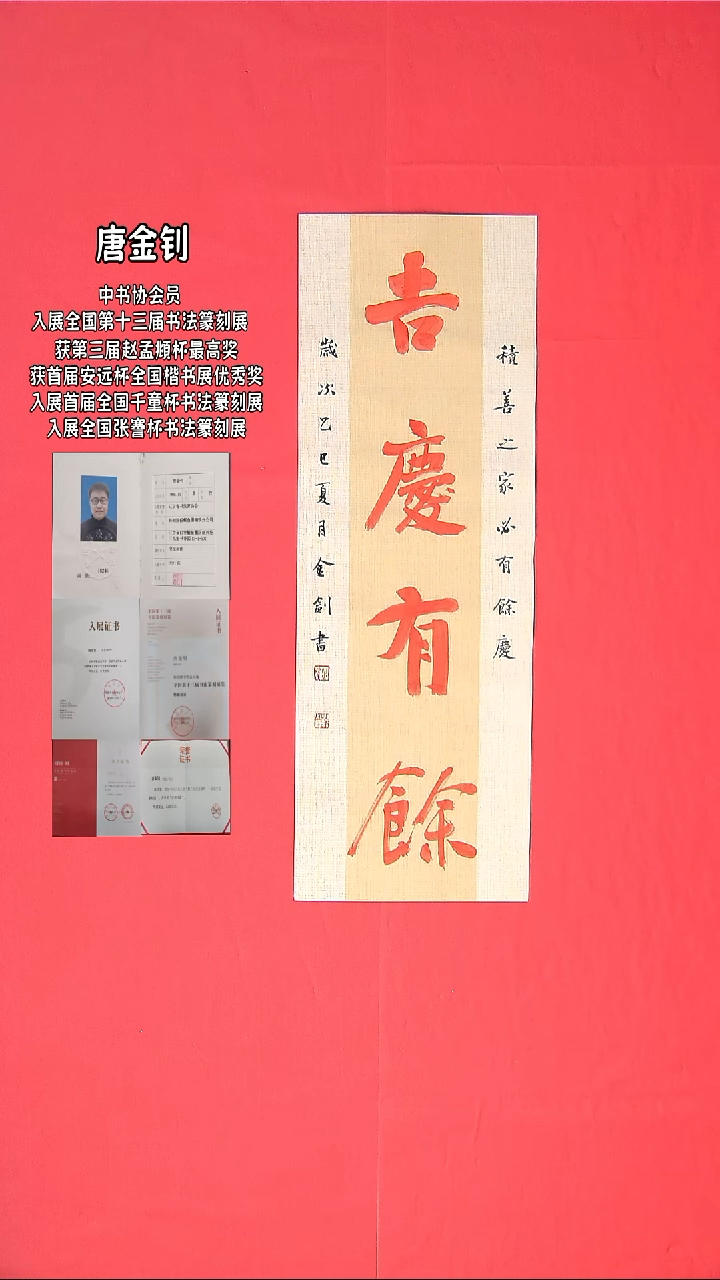 唐金钊
中书协会员
入展全国第十三届书法篆刻展
获第三届赵孟頫杯最高奖
获首届安远杯全国楷书展优秀奖
入展首届全国千童杯书法篆刻展
入展全国张謇杯书法篆刻展
入展证书
入展证书
荣誉证书
積善之家必有餘慶
吉慶有餘
歲次乙巳夏月金釗書